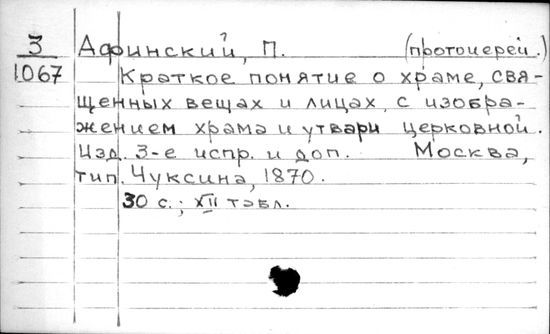 З Афинский, П. (протоиерей.)
1067 Краткое понятие о храме, свя-
щенных вещах и лицах, с изобра-
жением храма и утвари церковной.
Изд. 3-е испр. и доп. Москва,
тип. Чуксина, 1870.
30 с.; XII табл.